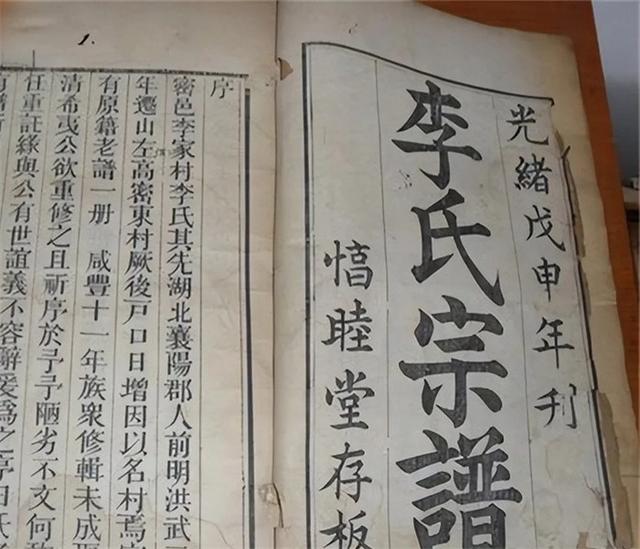 光緒戊申年刊
李氏宗譜
睦堂存板
序
密邑李家村李氏其先湖北襄陽郡人前明洪武
年遷山左高密東村厥後戶口日增因以名村焉
有原籍老譜一册 咸豐十一年族衆修輯未成
清希夷公欲重修之且祈序於予予陋劣不文何
任重託緣與公有世誼義不容辭爰爲之序曰氏
1.